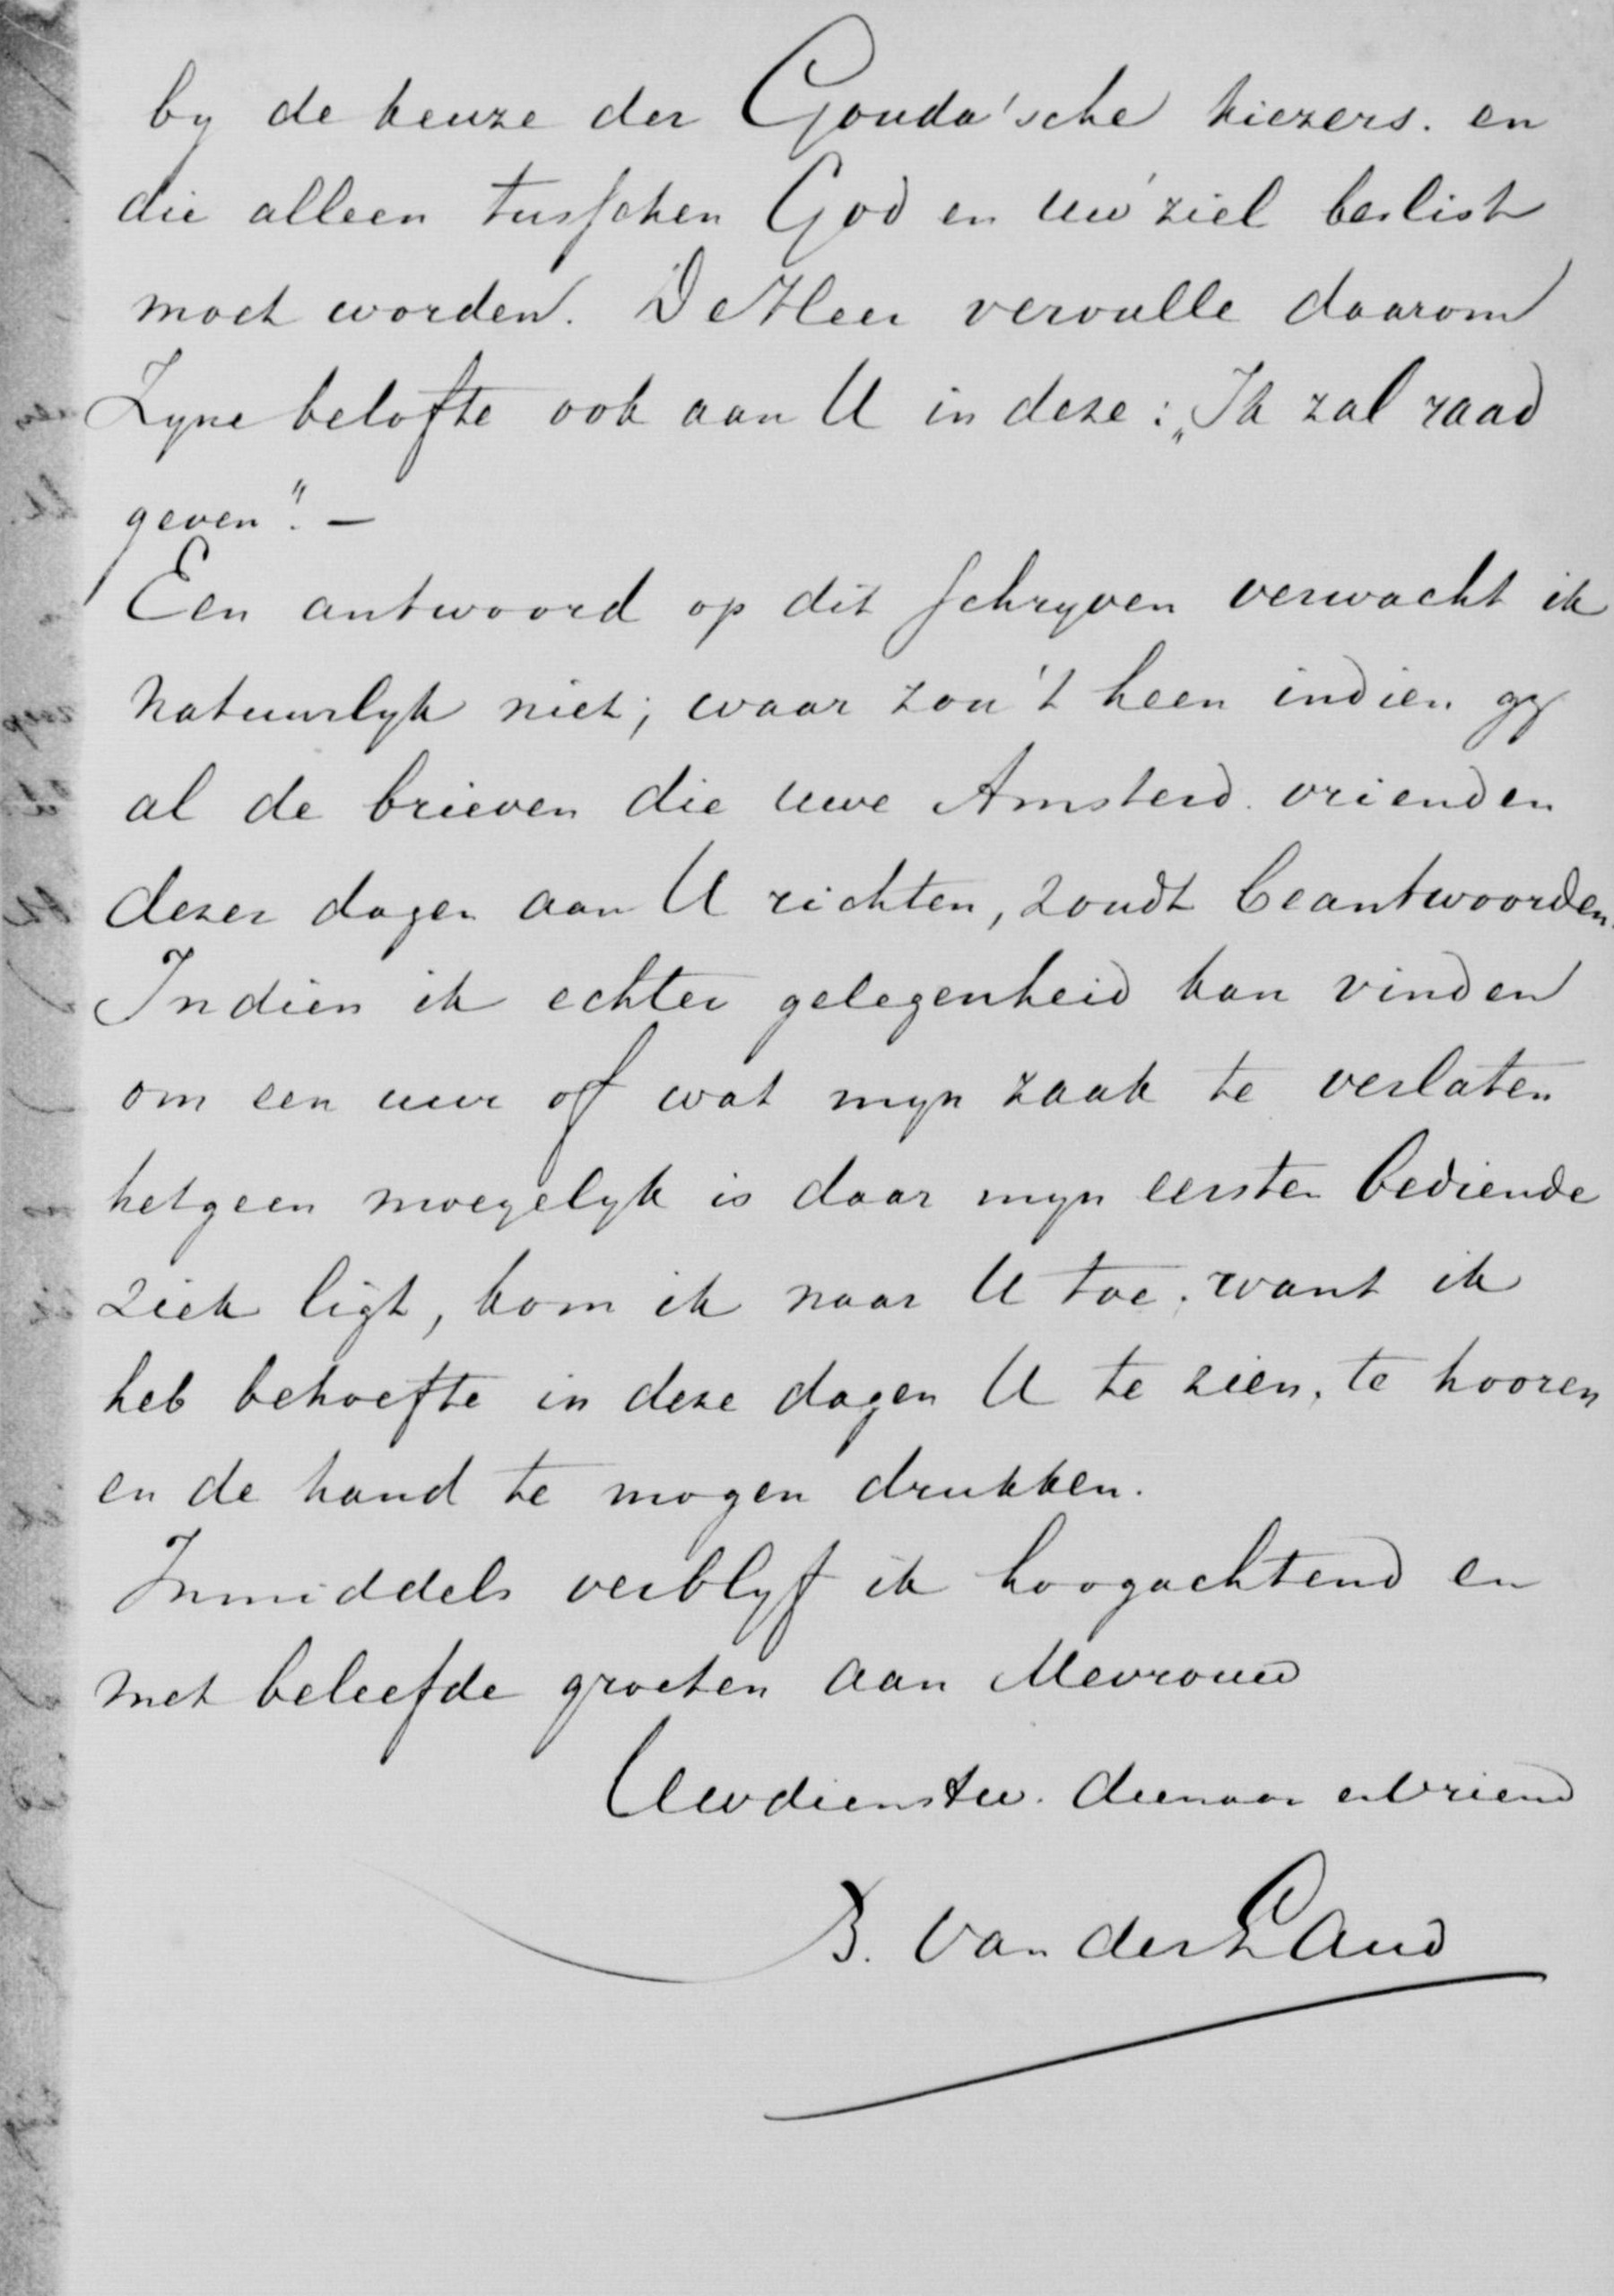 by de keuze der Gouda'sche kiezers. en
die alleen tusschen God en uw ziel beslist
moet worden. De Heer vervulle daarom
Zyne belofte ook aan U in deze: „Ik zal raad
geven". —
Een antwoord op dit schryven verwacht ik
natuurlyk niet; waar zou 't heen indien gy
al de brieven die uwe Amsterd. vrienden
dezer dagen aan U richten, zoudt beantwoorden.
Indien ik echter gelegenheid kan vinden
om een uur of wat myn zaak te verlaten
hetgeen moeyelyk is daar myn eerste bediende
ziek ligt, kom ik naar U toe, want ik
heb behoefte in deze dagen U te zien, te hooren
en de hand te mogen drukken.
Inmiddels verblyf ik hoogachtend en
met beleefde groeten aan Mevrouw
Uw dienstw. dienaar en Vriend
B. van der Land